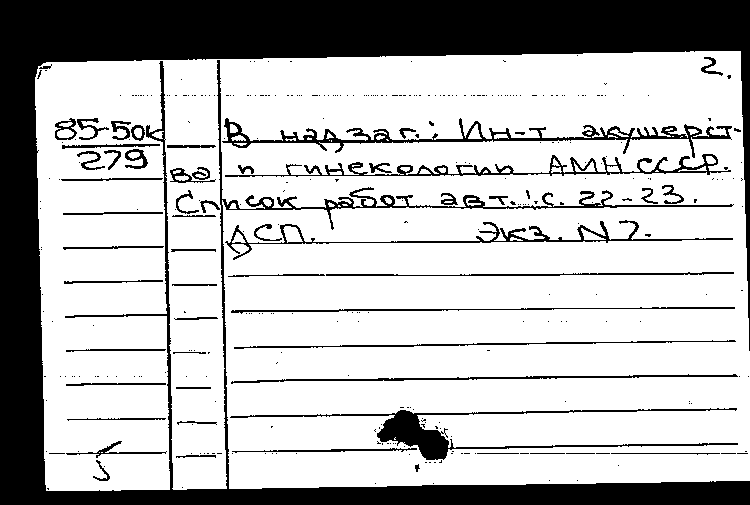 2.
85-5ок В надзаг.: Ин-т акушерст-
279 ва и гинекологии АМН СССР.
Список работ авт.: с. 22-23.
ДСП. Экз. N 7.
5